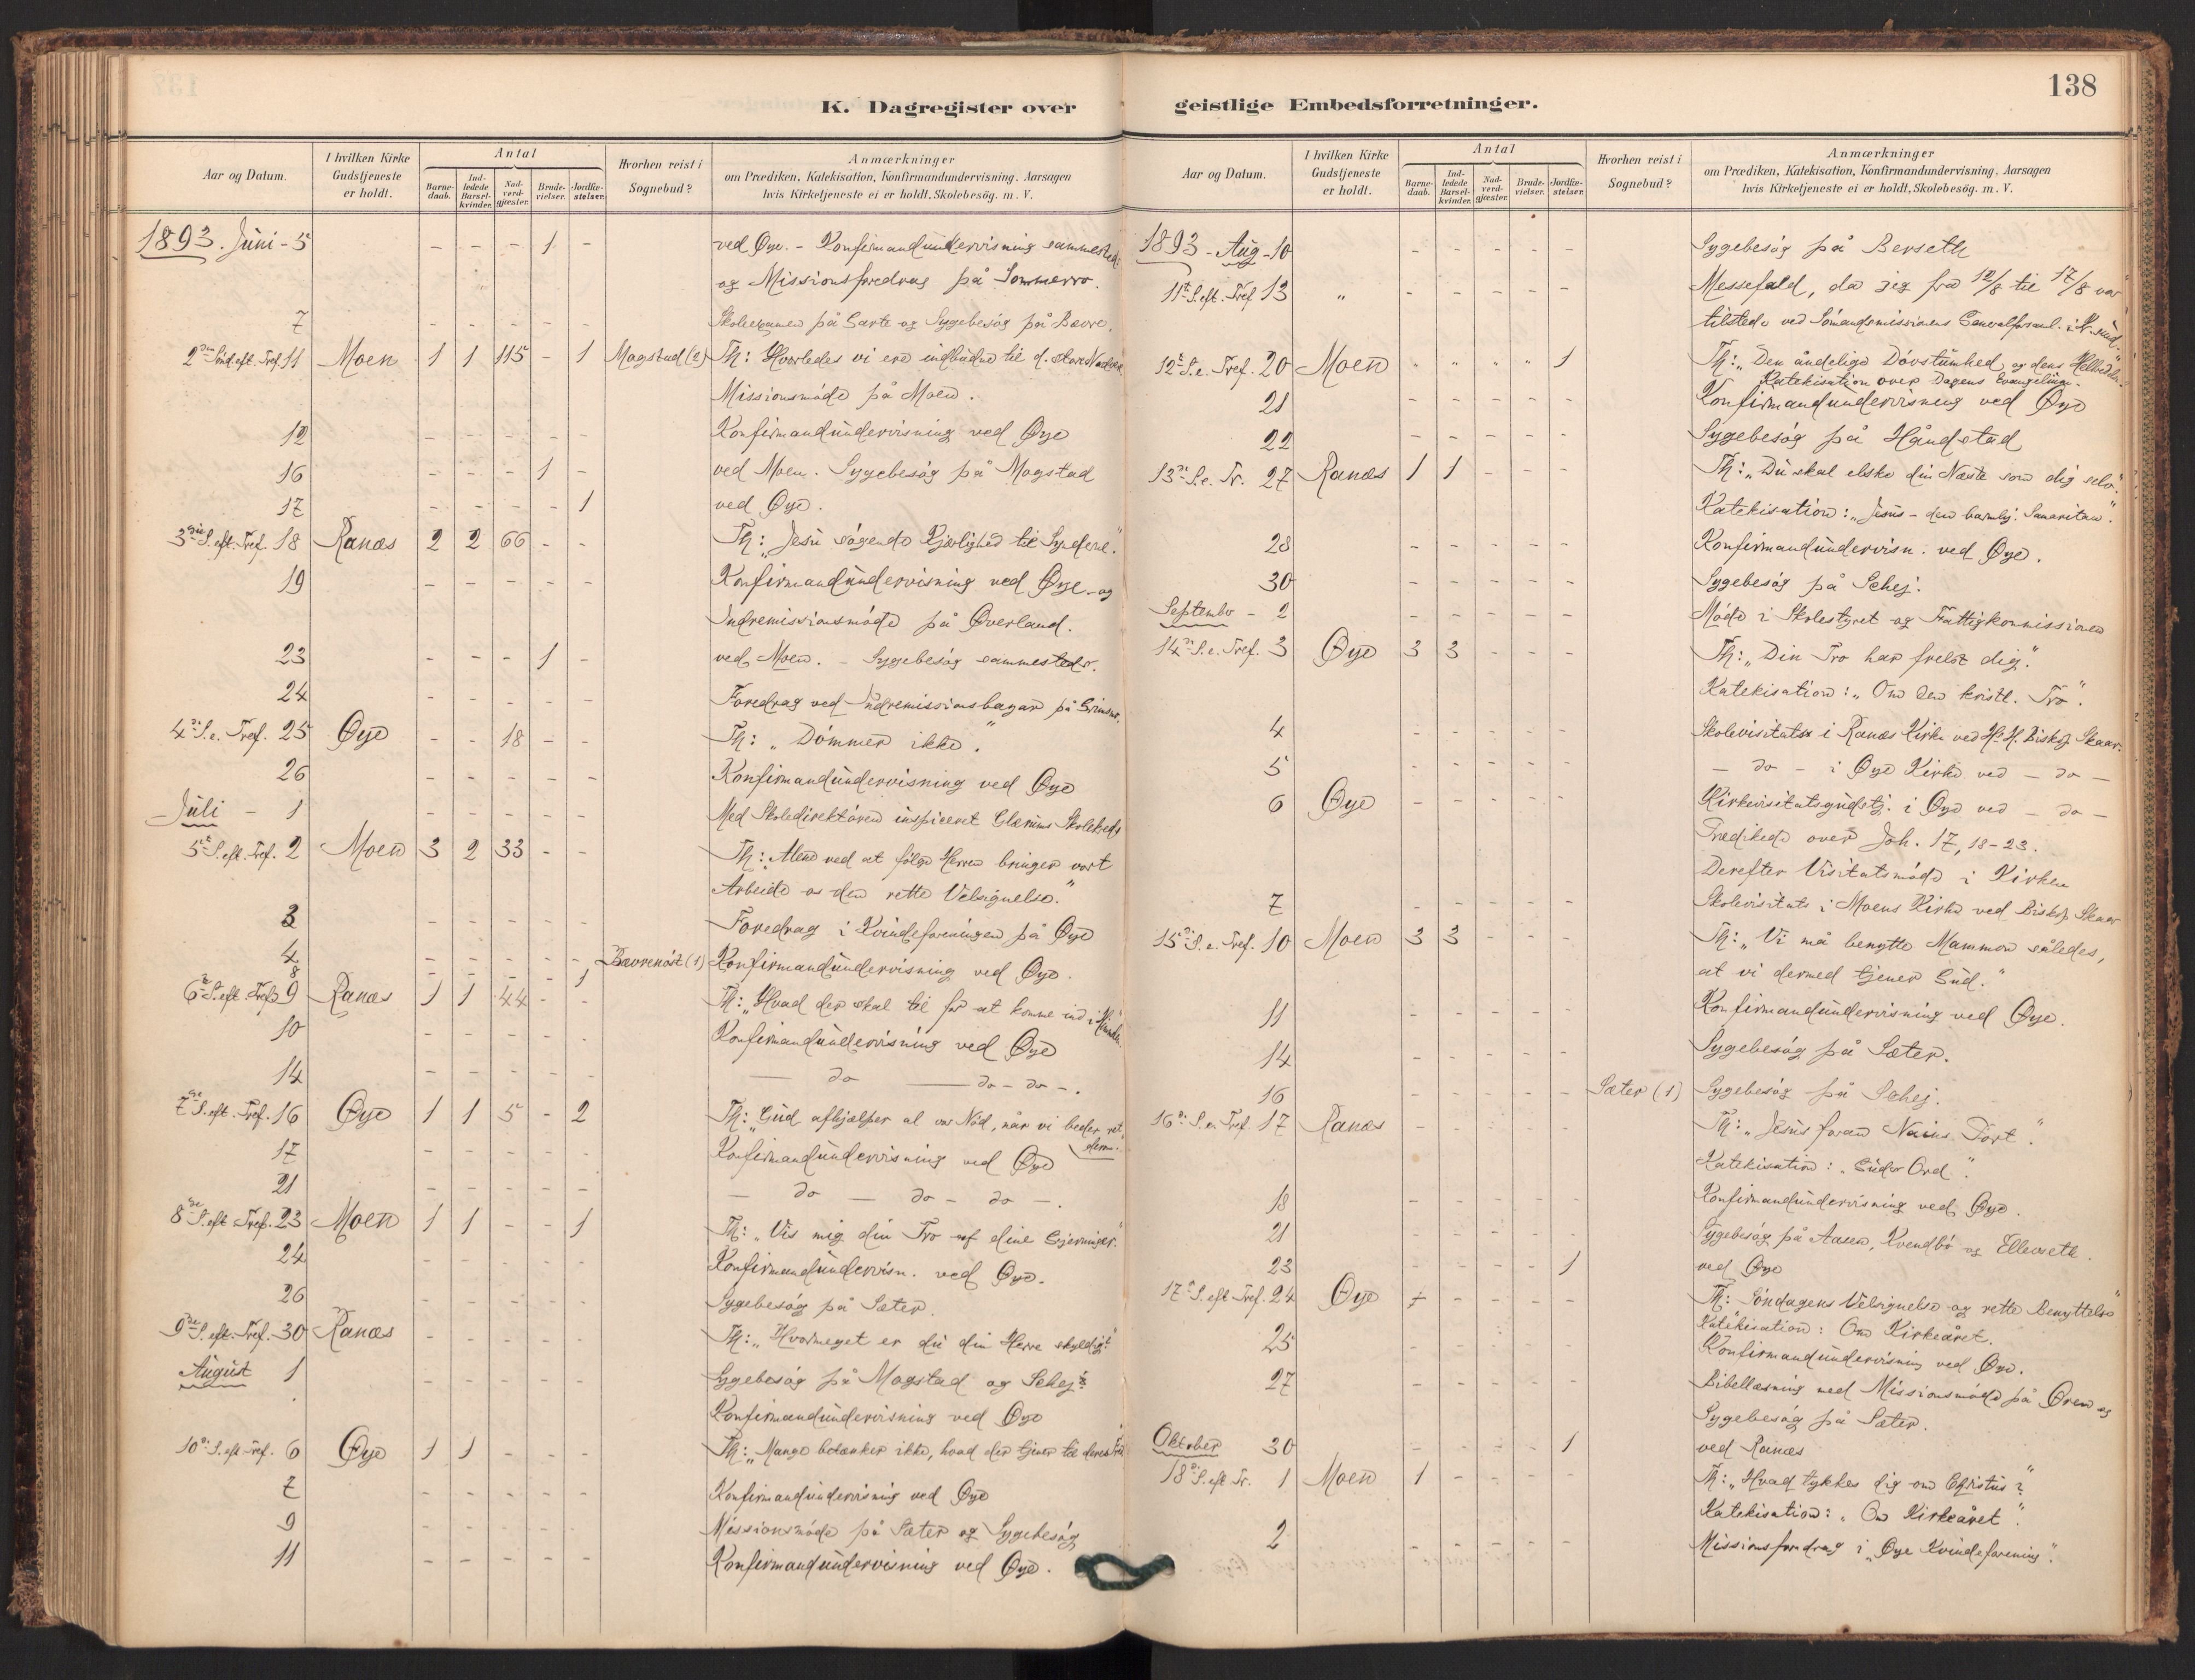 138
K. Dagregister over
Aar og Datum.
I hvilken Kirke Gudstjeneste er holdt.
Antal
Barne-daab.
Ind-ledede Barsel-kvinder.
Nad-verd-gjæster.
Brude-vielser.
Jordfæ-stelser.
Hvorhen reist i Sognebud?
Anmærkninger
om Prædiken, Katekisation, Konfirmandundervisning. Aarsagen
hvis Kirketjeneste ei er holdt. Skolebesög. m. V.
1893. Juni - 5 - - - 1 - ved Øye. - Konfirmandundervisning sammesteds
og Missionsforedrag på Sommerro.
7 - - - - - Skoleexamen på Garte og Sygebesög på Bævre.
2den Sönd. eft. Tref. 11 Moen 1 1 115 - 1 Magstad (2) Th: Hvorledes vi ere indbudne til d. store Nadver
Missionsmöde på Moen.
12 - - - - - Konfirmandundervisning ved Øye
16 - - - 1 - ved Moen. Sygebesög på Magstad
17 - - - - 1 ved Øye.
3die S. eft. Tref. 18 Ranæs 2 2 66 - - Th: "Jesu sögende Kjærlighed til Syndere."
19 - - - - - Konfirmandundervisning ved Øye - og
Indremissionsmöde på Øverland.
23 - - - 1 - ved Moen. - Sygebesög sammesteds.
24 - - - - - Foredrag ved Indremissionsbazar på
4de S. e. Tref. 25 Øye - - 18 - - Th: "Dömmer ikke."
26 - - - - - Konfirmandundervisning ved Øye
Juli - 1 - - - - - Med Skoledirektören inspiceret Glærums Skolekreds
5te S. eft. Tref. 2 Moen 3 2 33 - - Th: "Alene ved at fölge Herren bringer vort
Arbeide os den rette Velsignelse."
3 - - - - - Foredrag i Kvindeforeningen på Øye
4 - - - - - Bævrenöst (1) Konfirmandundervisning ved Øye.
8 - - - - 1
6te S. eft. Tref. 9 Ranæs 1 1 44 - - Th: "Hvad der skal til for at komme ind i Himmelen.
10 - - - - - Konfirmandundervisning ved Øye
14 - - - - - — do — do - do -.
7de S. eft. Tref. 16 Øye 1 1 5 - 2 Th: "Gud afhjælper al vor Nöd, når vi beder ret derom.
17 - - - - - Konfirmandundervisning ved Øye
21 - - - - - — do — do - do -.
8de S. eft. Tref. 23 Moen 1 1 - - 1 Th: "Vis mig din Tro af dine Gjerninger."
24 - - - - - Konfirmandundervisn. ved Øye.
26 - - - - - Sygebesög på Sæter.
9de S. eft. Tref. 30 Ranæs - - - - - Th: "Hvormeget er du din Herre skyldig?"
August 1 - - - - - Sygebesög på Magstad og Schej
Konfirmandundervisning ved Øye
10de S. eft. Tref. 6 Øye 1 1 - - - Th: "Mange betænker ikke, hvad der tjener til deres Fred
7 - - - - - Konfirmandundervisning ved Øye
9 - - - - - Missionsmöde på Sæter og Sygebesög
11 - - - - - Konfirmandundervisning ved Øye.
geistlige Embedsforretninger.
Aar og Datum.
I hvilken Kirke Gudstjeneste er holdt.
Antal
Barne-daab.
Ind-ledede Barsel-kvinder.
Nad-verd-gjæster.
Brude-vielser.
Jordfæ-stelser.
Hvorhen reist i Sognebud?
Anmærkninger
om Prædiken, Katekisation, Konfirmandundervisning, Aarsagen
hvis Kirketjeneste ei er holdt, Skolebesög. m. V.
1893 - Aug - 10 - - - - - Sygebesög på Berseth
11te S. eft. Tref 13 " Messefald, da jeg fra 12/8 til 17/8 var
tilstede ved Sömandsmissionens Generalforsaml. i K.sund.
12te S. e. Tref. 20 Moen " " " " 1 Th: "Den åndelige Dövstumhed og dens Helbredelse."
Katekisation over Dagens Evangelium.
21 - - - - - Konfirmandundervisning ved Øye
22 - - - - - Sygebesög på Håndstad
13de S. e. Tr. 27 Ranæs 1 1 - - - Th: "Du skal elske din Næste som dig selv."
Katekisation: "Jesus - den barmhj. Samaritan."
28 - - - - - Konfirmandundervisn. ved Øye.
30 - - - - - Sygebesög på Schej.
September - 2 - - - - - Möde i Skolestyret og Fattigkommissionen
14de S. e. Tref. 3 Øye 3 3 - - - Th: "Din Tro har frelst dig."
Katekisation: "Om den kristl. Tro."
4 - - - - - Skolevisitats i Ranæs Kirke ved Hr. H. Biskop Skaar.
5 - - - - - — do - i Øye Kirke ved - do -
6 Øye - - - - - Kirkevisitatsgudstj. i Øye ved - do -
Prædikede over Joh. 17, 18-23.
Derefter Visitatsmöde i Kirken
7 - - - - - Skolevisitats i Moens Kirke ved Biskop Skaar
15de S. e. Tref. 10 Moen 3 3 - - - Th: "Vi må benytte Mammon således,
at vi dermed tjener Gud."
11 - - - - - Konfirmandundervisning ved Øye.
14 - - - - - Sygebesög på Sæter.
16 - - - - - Sæter (1) Sygebesög på Schej.
16de S. e. Tref. 17 Ranæs - - - - - Th: "Jesus foran Nains Port."
Katekisation: "Guds Ord."
18 - - - - - Konfirmandundervisning ved Øye.
21 - - - - - Sygebesög på Aasen, Kvendbö og Ellevseth.
23 - - - - 1 ved Øye
17de S. eft Tref. 24 Øye - - - - - Th: "Söndagens Velsignelse og rette Benyttelse"
Katekisation: Om Kirkeåret.
25 - - - - - Konfirmandundervisning ved Øye.
27 - - - - - Bibellæsning med Missionsmöde på Øren og
Sygebesög på Sæter.
Oktober 30 - - - - 1 ved Ranæs
18de S. eft Tr. 1 Moen 1 - - - - Th: "Hvad tykkes dig om Christus?"
Katekisation: "Om Kirkeåret".
2 - - - - - Missionsforedrag i "Øye Kvindeforening".